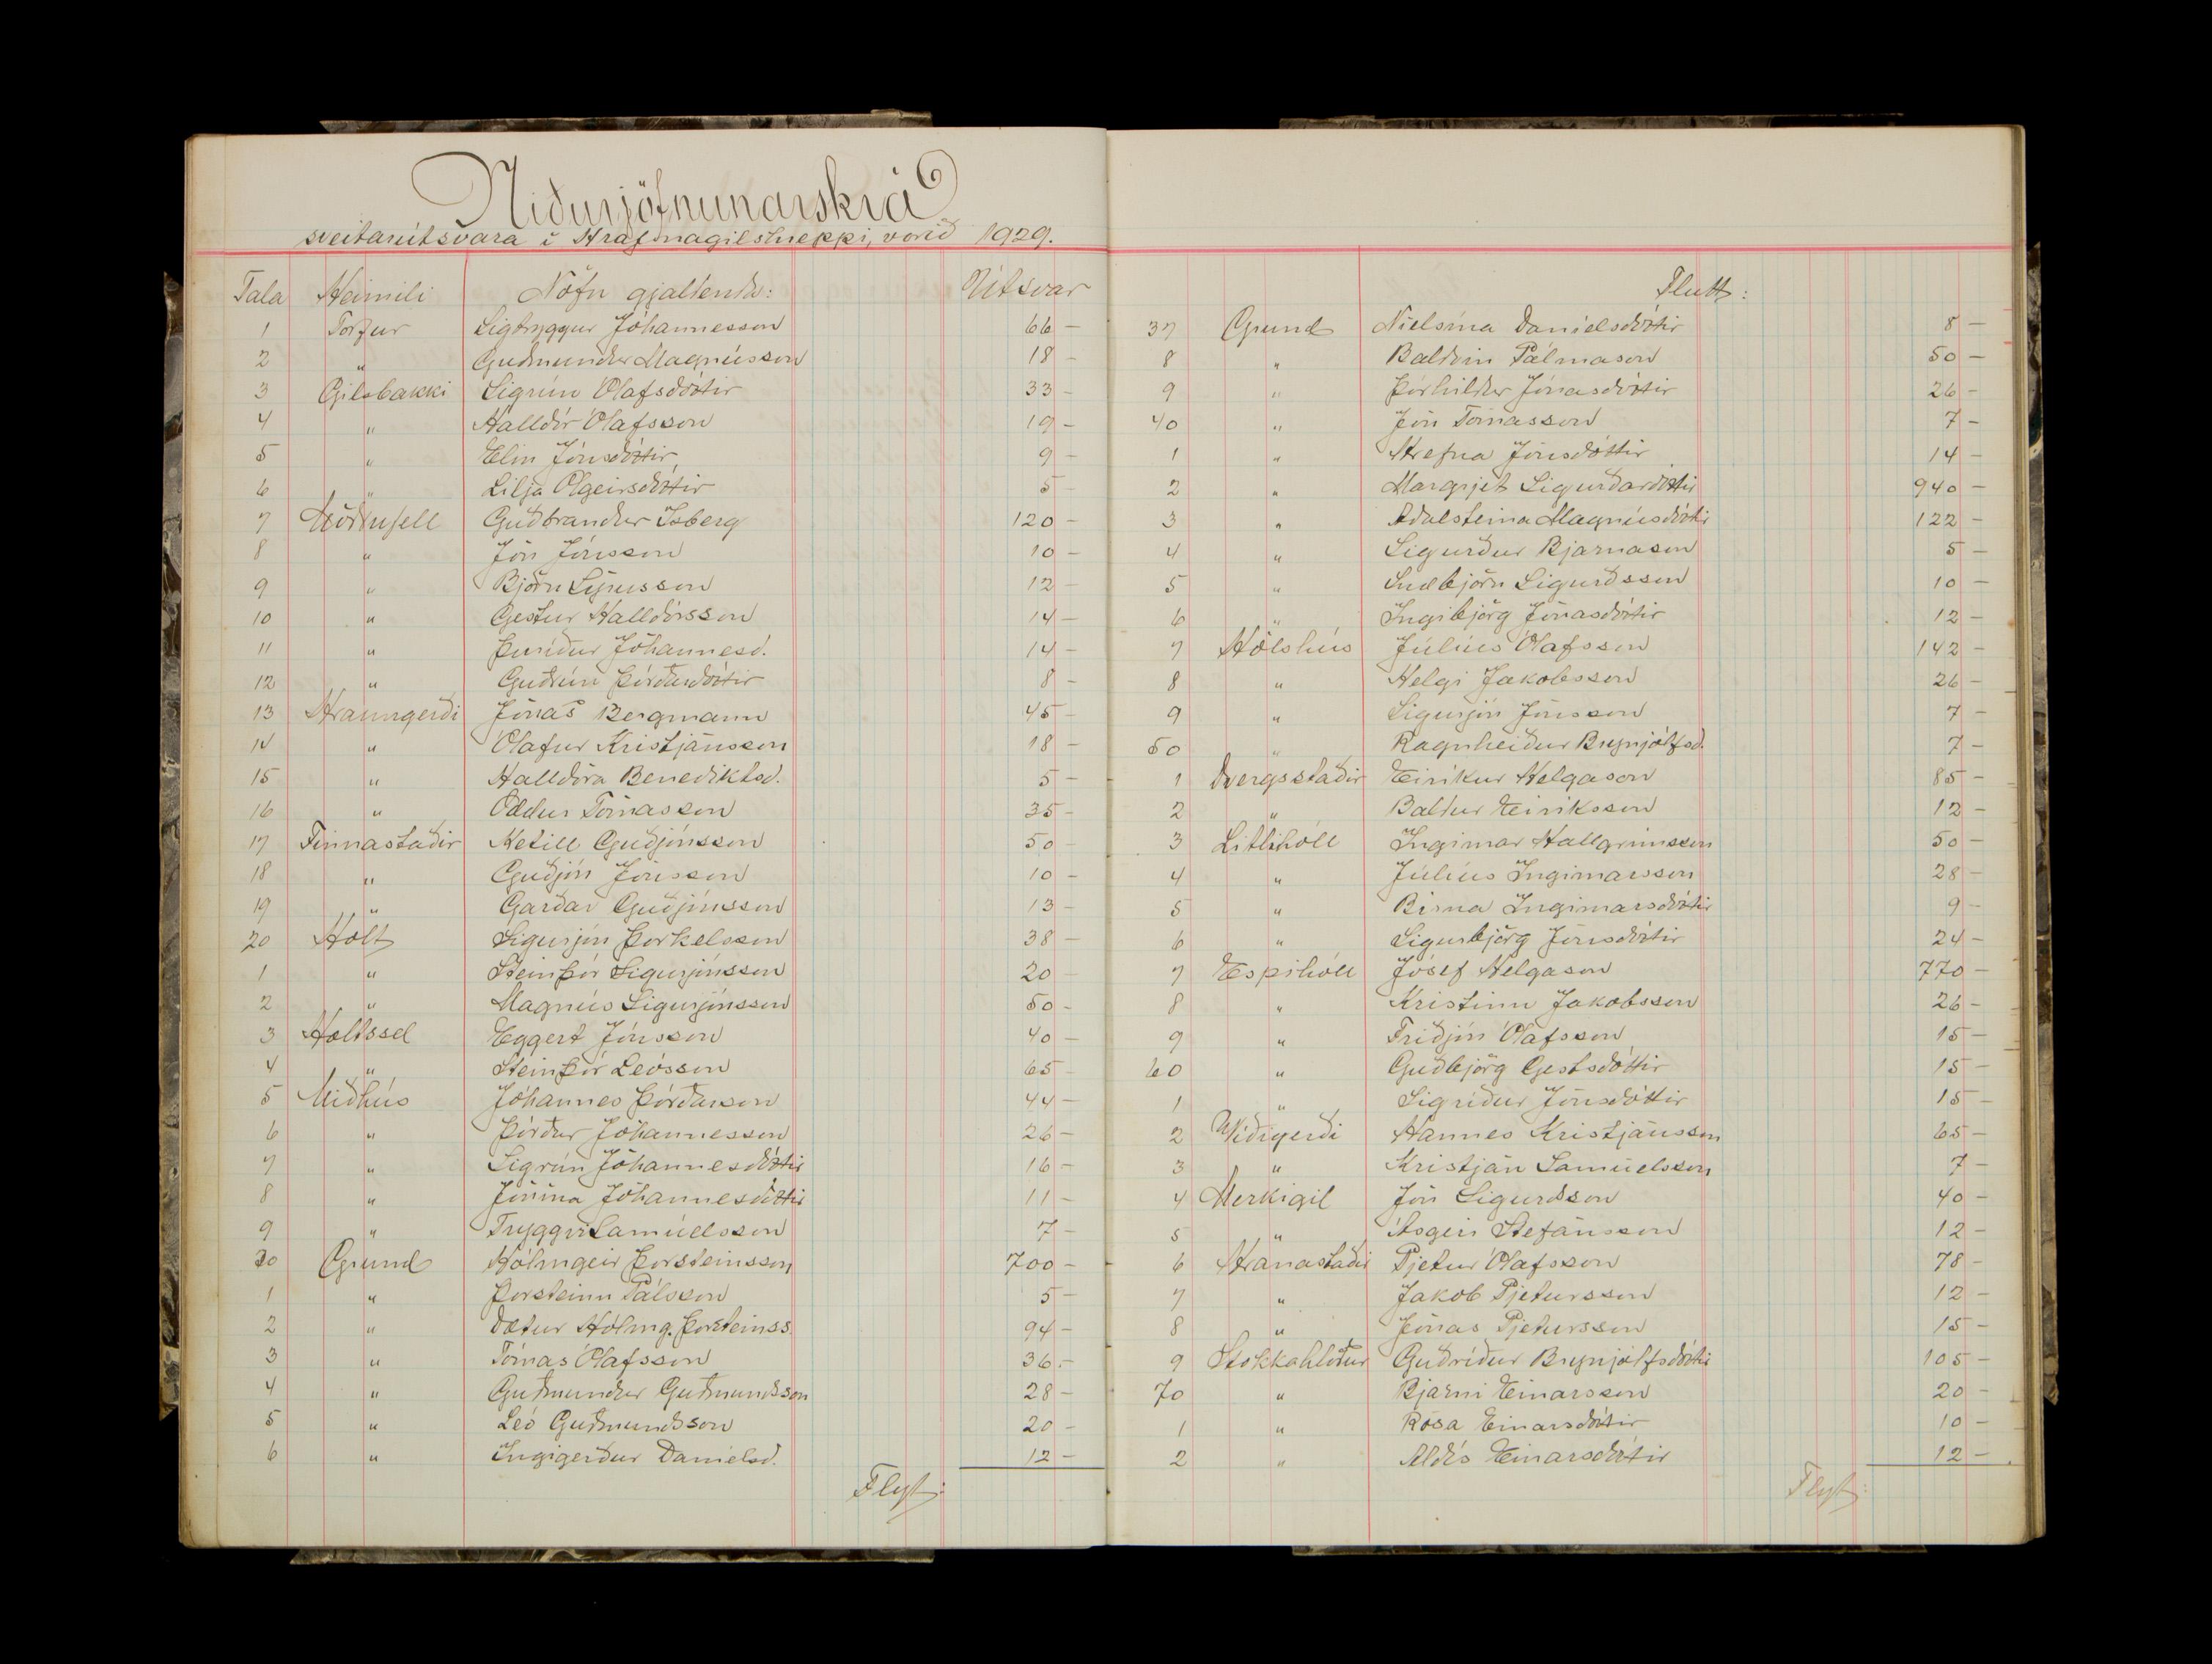 Niðurjöfnunarskrá
sveitarútsvara í Hrafnagilshreppi, vorið 1929.
Tala Heimili Nöfn gjaldenda: Útsvar
1 Torfur Sigtryggur Jóhannesson 66 –
2 " Guðmundur Magnússon 18 –
3 Gilsbakki Sigrún Ólafsdóttir 33 –
4 " Halldór Ólafsson 19 –
5 " Elín Jónsdóttir 9 –
6 " Lilja Olgeirsdóttir 5 –
7 Möðrufell Guðbrandur Ísberg 120 –
8 " Jón Jónsson 10 –
9 " Björn 12 –
10 " Gestur Halldórsson 14 –
11 " Þuríður Jóhannesd. 14 –
12 " Guðrún Þórðardóttir 8 –
13 Hraungerði Jónas Bergmann 45 –
14 " Ólafur Kristjánsson 18 –
15 " Halldóra Benediktsd. 5 –
16 " Oddur Tómasson 35 –
17 Finnastaðir Ketill Guðjónsson 50 –
18 " Guðjón Jónsson 10 –
19 " Garðar Guðjónsson 13 –
20 Holt Sigurjón Þorkelsson 38 –
1 " Steinþór Sigurjónsson 20 –
2 " Magnús Sigurjónsson 50 –
3 Holtssel Eggert Jónsson 40 –
4 " Steinþór Leósson 65 –
5 Miðhús Jóhannes Þórðarson 44 –
6 " Þórður Jóhannesson 26 –
7 " Sigrún Jóhannesdóttir 16 –
8 " Jónína Jóhannesdóttir 11 –
9 " Tryggvi Samúelsson 7 –
30 Grund Hólmgeir Þorsteinsson 700 –
1 " Þorsteinn Pálsson 5 –
2 " Dætur Hólmg. Þorsteinss. 94 –
3 " Tómas Ólafsson 36 –
4 " Guðmundur Guðmundsson 28 –
5 " Leó Guðmundsson 20 –
6 " Ingigerður Daníelsd. 12 –
Flyt:
Flutt:
37 Grund Níelsína Daníelsdóttir 8 –
8 " Baldvin Pálmason 50 –
9 " Þórhildur Jónasdóttir 26 –
40 " Jón Tómasson 7 –
1 " Hrefna Jónsdóttir 14 –
2 " Margrjet Sigurðardóttir 940 –
3 " Aðalsteina Magnúsdóttir 122 –
4 " Sigurður Bjarnason 5 –
5 " Snæbjörn Sigurðsson 10 –
6 " Ingibjörg Jónasdóttir 12 –
7 Hólshús Júlíus Ólafsson 142 –
8 " Helgi Jakobsson 26 –
9 " Sigurjón Jónsson 7 –
50 " Ragnheiður Brynjólfsd. 7 –
1 Dvergsstaðir Eiríkur Helgason 85 –
2 " Baldur Eiríksson 12 –
3 Litlihóll Ingimar Hallgrímsson 50 –
4 " Júlíus Ingimarsson 28 –
5 " Birna Ingimarsdóttir 9 –
6 " Sigurbjörg Jónsdóttir 24 –
7 Espihóll Jósef Helgason 770 –
8 " Kristinn Jakobsson 26 –
9 " Friðjón Ólafsson 15 –
60 " Guðbjörg Gestsdóttir 15 –
1 " Sigríður Jónsdóttir 15 –
2 Víðigerði Hannes Kristjánsson 65 –
3 " Kristján Samúelsson 7 –
4 Merkigil Jón Sigurðsson 40 –
5 " Ásgeir Stefánsson 12 –
6 Hranastaðir Pjetur Ólafsson 78 –
7 " Jakob Pjetursson 12 –
8 " Jónas Pjetursson 15 –
9 Stokkahlöður Guðríður Brynjólfsdóttir 105 –
70 " Bjarni Einarsson 20 –
1 " Rósa Einarsdóttir 10 –
2 " Aldís Einarsdóttir 12 –
Flyt: